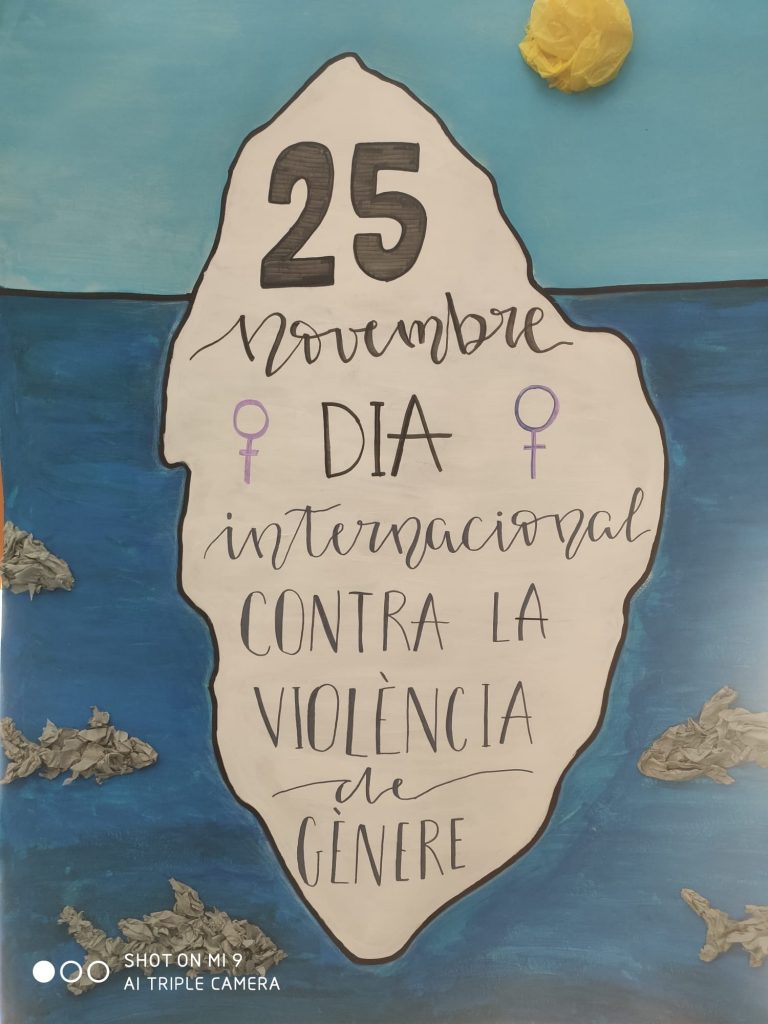 25
novembre
DIA
internacional
CONTRA LA
VIOLÈNCIA
de
GÈNERE
SHOT ON MI 9
AI TRIPLE CAMERA